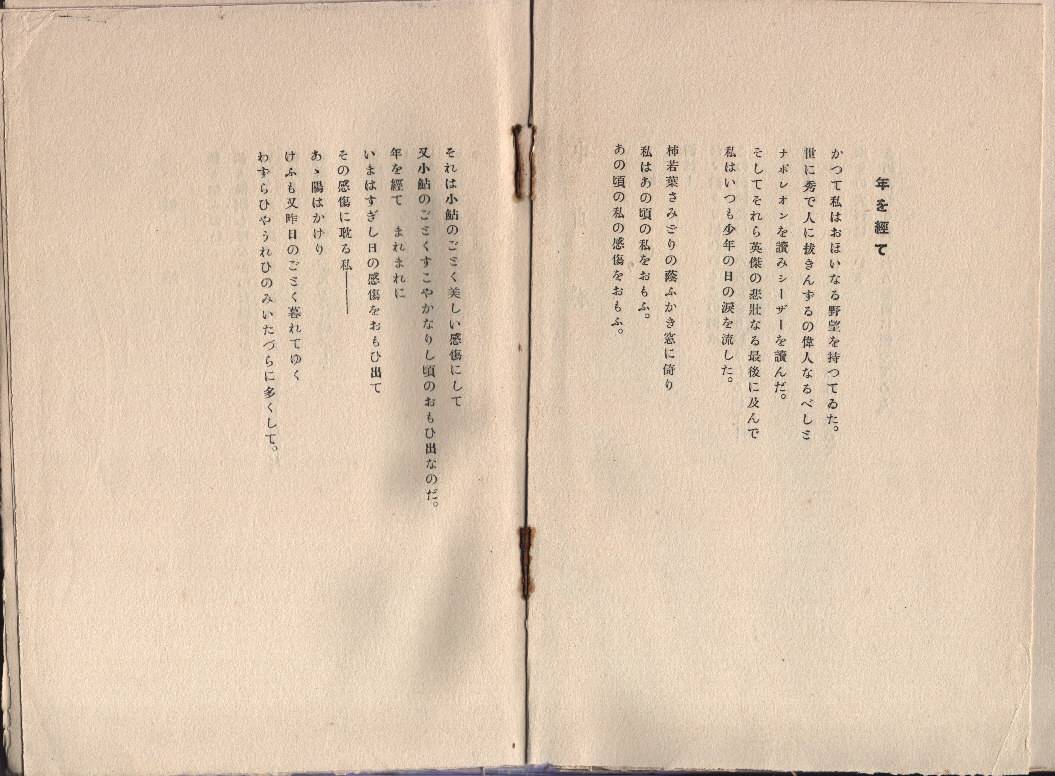 年を經て
かつて私はおほいなる野望を持つてゐた。
世に秀で人に拔きんずるの偉人なるべしと
ナポレオンを讀みシーザーを讀んだ。
そしてそれら英傑の悲壯なる最後に及んで
私はいつも少年の日の淚を流した。
柿若葉さみどりの蔭ふかき窓に倚り
私はあの頃の私をおもふ。
あの頃の私の感傷をおもふ。
それは小鮎のごとく美しい感傷にして
又小鮎のごとくすこやかなりし頃のおもひ出なのだ。
年を經て　まれまれに
いまはすぎし日の感傷をおもひ出て
その感傷に耽る私――
あゝ陽はかげり
けふも又昨日のごとく暮れてゆく
わずらひやうれひのみいたづらに多くして。